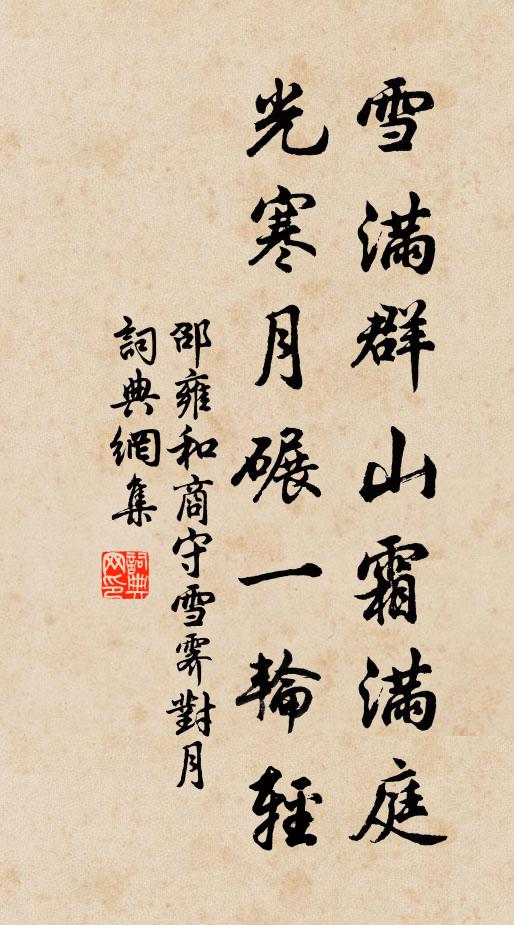 雪滿群山霜滿庭
光寒月碾一輪輕
邵雍和商守雪霽對月
詞典網集
詞典网印